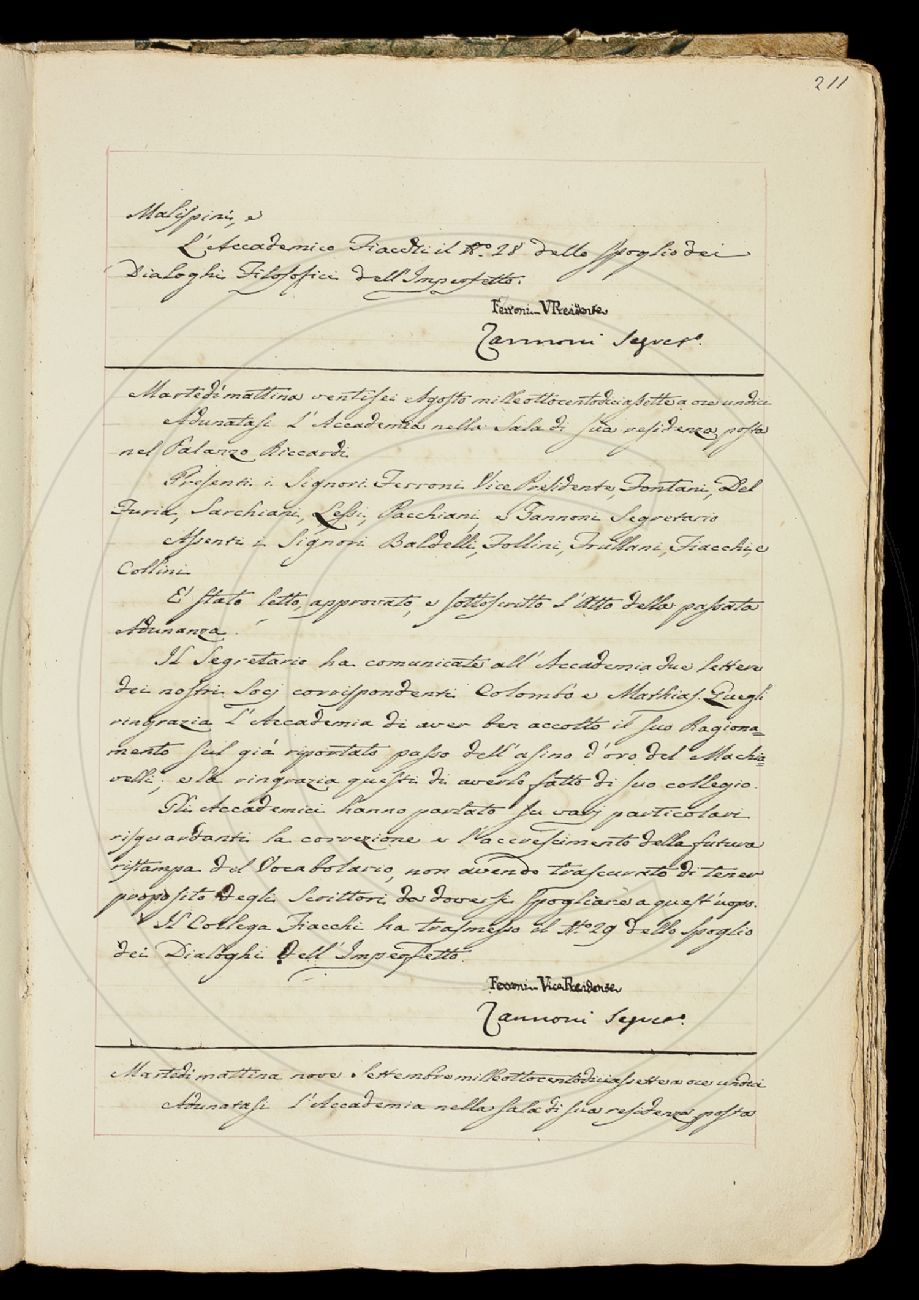 211
Malispini, e
L'Accademico Fiacchi il N.º 28 dello Spoglio dei
Dialoghi Filosofici dell'Imperfetto.
Ferroni VPresidente
Zannoni Segret.º
Martedì mattina ventisei Agosto milleottocentodiciassette a ore undici
Adunatasi l'Accademia nella Sala di sua residenza posta
nel Palazzo Riccardi
Presenti i Signori Ferroni Vice Presidente, Fontani, Del
Furia, Sarchiani, Lessi, Pacchiani, e Zannoni Segretario
Assenti i Signori Baldelli, Follini, Frullani, Fiacchi, e
Collini
E' stato letto, approvato, e sottoscritto l'Atto della passata
Adunanza.
Il Segretario ha comunicate all'Accademia due lettere
dei nostri Socj corrispondenti Colombo e Mathias. Quegli
ringrazia l'Accademia di aver ben accolto il suo Ragiona=
mento sul già riportato passo dell'asino d'oro del Machia=
velli; e la ringrazia questi di averlo fatto di suo collegio.
Gli Accademici hanno parlato su varj particolari
risguardanti la correzione e l'accrescimento della futura
ristampa del Vocabolario, non avendo trascurato di tener
proposito degli Scrittori da doversi spogliare a quest'uopo.
Il Collega Fiacchi ha trasmesso il N.º 29 dello Spoglio
dei Dialoghi dell'Imperfetto.
Ferroni Vice Presidente
Zannoni Segret.º
Martedì mattina nove Settembre milleottocentodiciassette a ore undici
Adunatasi l'Accademia nella sala di sua residenza posta